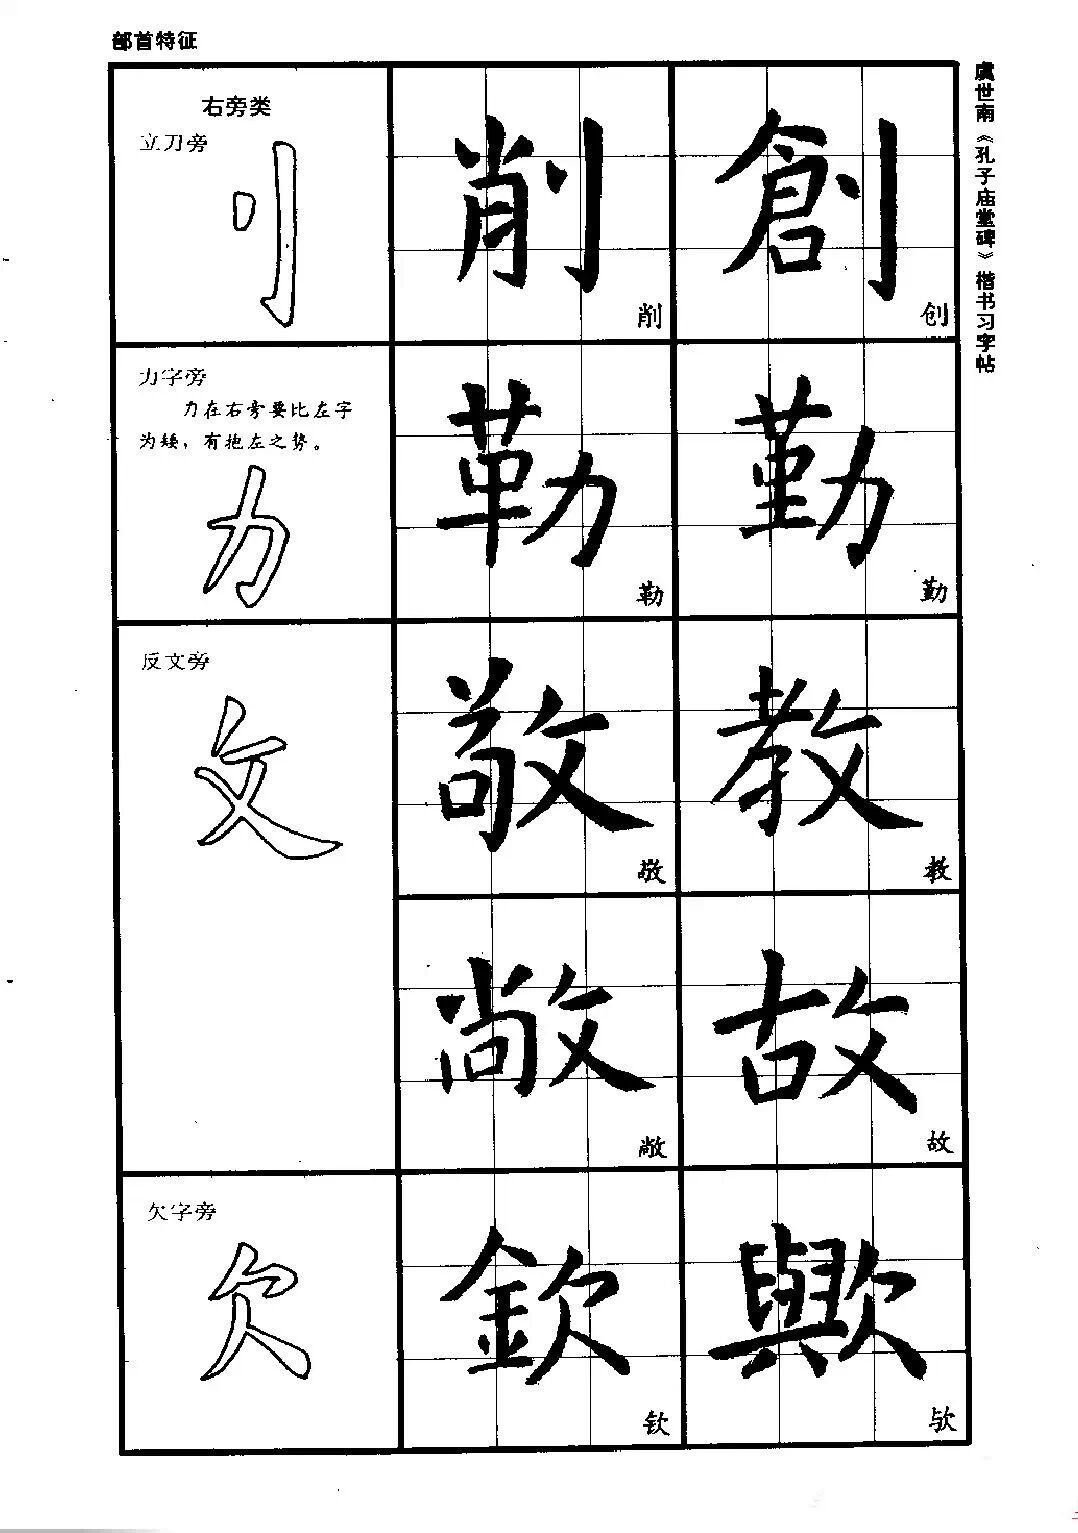 部首特征
虞世南《孔子庙堂碑》楷书习字帖
右旁类
立刀旁
刂
削
削
創
创
力字旁
力在右旁要比左字
为矮，有抱左之势。
力
勒
勒
勤
勤
反文旁
攵
敬
敬
教
教
敞
敞
故
故
欠字旁
欠
欽
钦
歟
欤